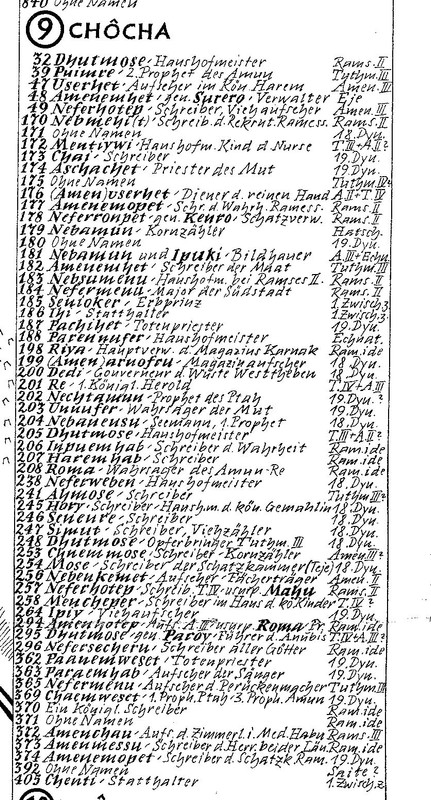 840 Ohne Namen
9 CHÔCHA
32 Dhutmose, Haushofmeister Rams.II
39 Puimre, 2.Prophet des Amun Tuthm.III
47 Userhet, Aufseher im Kön. Harem Amen.III
48 Amenemhet, gen. Surero, Verwalter Eje
49 Neferhotep, Schreiber, Viehaufseher Amen.III
170 Nebmehi(t), Schreib.d.Rekrut.Ramess. Rams.II
171 Ohne Namen 18.Dyn.
172 Mentiywi, Haushofm. Kind d Nurse T.III+A.II?
173 Chai, Schreiber 19.Dyn.
174 Aschachet, Priester des Mut 19.Dyn.
175 Ohne Namen Tuthm.IV?
176 (Amen)userhet, Diener d. reinen Hand A.II+T.IV
177 Amenemopet, Schr.d Wahrh. Ramess. Rams.II
178 Neferronpet, gen. Kenro, Schatzverw. Rams.II
179 Nebamun, Kornzähler Hatsch.
180 Ohne Namen 19.Dyn.
181 Nebamun und Ipuki, Bildhauer A.III+Echn.
182 Amenemhet, Schreiber der Mäat Tuthm.III
183 Nebsumenu, Haushofm. bei Ramses II. Rams.II
184 Nefermenu, Major der Südstadt Rams.II
185 Senioker, Erbprinz 1.Zwisch.z
186 Ihi, Statthalter 1.Zwisch.z
187 Pachihet, Totenpriester 19.Dyn.
188 Parennufer, Haushofmeister Echnat.
198 Riya, Hauptverw. d. Magazins Karnak Ram.ide
199 (Amen)arnofru, Magazinaufscher 18.Dyn.
200 Dedi, Gouverneur d. Wüste Westtheben 18.Dyn.
201 Re, 1.Königl. Herold T.IV+A.III
202 Nechtamun, Prophet des Ptah 19.Dyn.?
203 Unnufer, Wahrsager der Mut 19.Dyn.
204 Nebanensu, Seemann, 1.Prophet 18.Dyn.
205 Dhutmose, Haushofmeister T.III+A.II?
206 Inpuemhab, Schreiber d.Wahrheit Ram.ide
207 Haremhab, Schreiber Ram.ide
208 Roma, Wahrsager des Amun-Re Ram.ide
238 Neferweben, Haushofmeister 18.Dyn.
241 Ahmose, Schreiber Tuthm.III?
245 Hory, Schreiber, Haushm.d.kön.Gemahlin 18.Dyn.
246 Senenre, Schreiber 18.Dyn.
247 Simut, Schreiber, Viehzähler 18.Dyn.
248 Dhutmose, Opferbringer Tuthm.III 18.Dyn.
253 Chnemmose, Schreiber, Kornzähler Amen.III?
254 Mose, Schreiber der Schatzkammer(Teje) 18.Dyn.
256 Nebenkemet, Aufseher, Fächerträger Amen.II
257 Neferhotep, Schreib.T.IV-usurp. Mahu Rams.II
258 Mencheper, Schreiber im Haus d.kö.Kinder T.IV?
264 Ipiy, Viehaufseher
294 Amenhotep, Aufs. A.III-usurp. Roma, Pr. Ram.ide
295 Dhutmose, gen. Paroy, Führer d. Anubis T.IV+A.III?
296 Nefersecheru, Schreiber aller Götter Ram.ide
362 Paanemweset, Totenpriester 19.Dyn.
363 Paraemhab, Aufseher der Sänger 19.Dyn.
365 Nefermenu, Aufseher d.Perückenmacher Tuthm.III
369 Chaemweset, 1.Proph.Ptah,3.Proph.Amun 19.Dyn.
370 Ein Königl. Schreiber Ram.ide
371 Ohne Namen Ram.ide
372 Amenchau, Aufs.d.Zimmerl.i.Med.Habu Rams.III
373 Amenmessu, Schreiber d.Herr.beider Län. Ram.ide
374 Amenemopet, Schreiber d.Schatzk. Ram. 19.Dyn.
392 Ohne Namen Saite?
405 Chenti, Statthalter 1.Zwisch.z